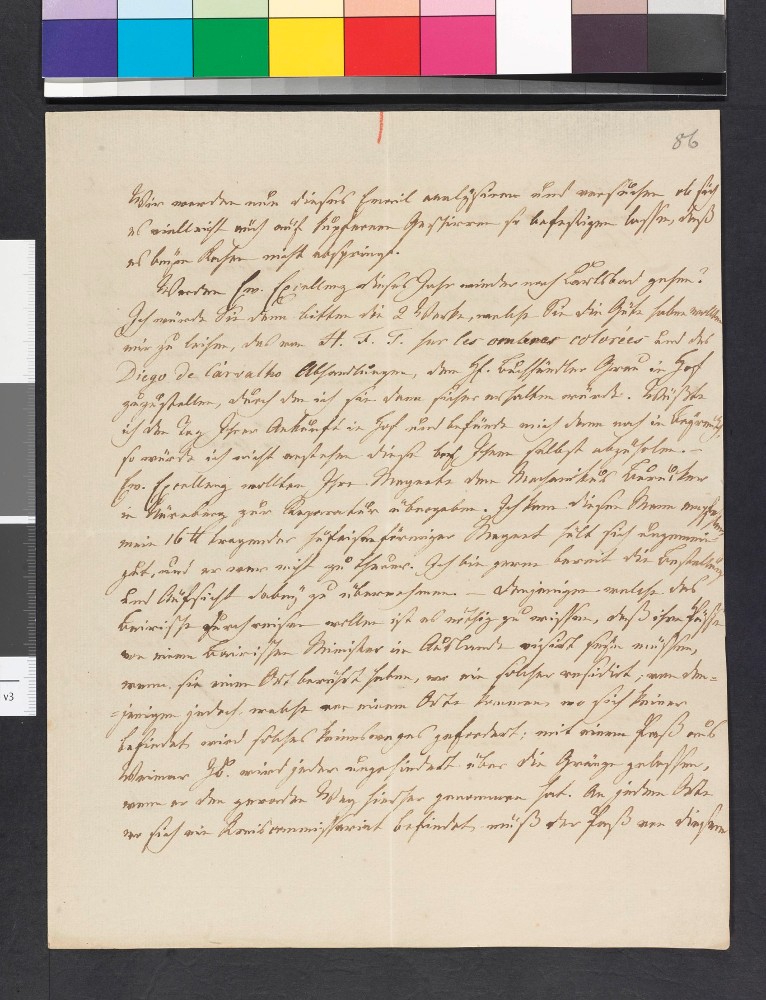 86
Wir werden nun dieses Email analysiren und versuchen ob sich
es vielleicht auch auf kupfernen Geschirren so befestigen lasse, daß
es beym Kochen nicht abspringt.
Werden Ew. Excellenz dieses Jahr wieder nach Carlsbad gehen?
Ich würde Sie dann bitten die 2 Werke, welche Sie die Güte haben wollten
mir zu leihen, das von H. F. T. sur les ombres colorées und des
Diego de Carvalho Abhandlungen, dem Hf. Buchhändler Grau in Hof
zuzustellen, durch den ich sie dann sicher erhalten würde. Wüßte
ich den Tag Ihrer Ankunft in Hof und befände mich dann noch in
so würde ich nicht anstehen diese bey Ihnen selbst abzuholen. –
Ew. Excellenz wollten Ihre Magnete dem Mechanikus
in Nürnberg zur Reparatur übergeben. Ich kann diesen Mann empfehlen,
mein 16 ℔ tragender hufeisenförmiger Magnet hält sich ungemein
gut, und er war nicht zu theuer. Ich bin gerne bereit die Bestellung
und Aufsicht dabey zu übernehmen. – Denjenigen welche das
Bairische durchreisen wollen ist es nöthig zu wissen, daß ihre Pässe
von einem Bairischen Minister im Auslande visirt seyn müssen,
wenn sie einen Ort berührt haben, wo ein solcher residirt; von den=
=jenigen jedoch welche von einem Orte kommen, wo sich keiner
befindet wird solches keineswegs gefordert; mit einem Paß aus
Weimar ZB. wird jeder ungehindert über die Gränze gelassen,
wenn er den geraden Weg hierher genommen hat. An jedem Orte
wo sich ein Kreiscommissariat befindet muß der Paß von diesem
v3